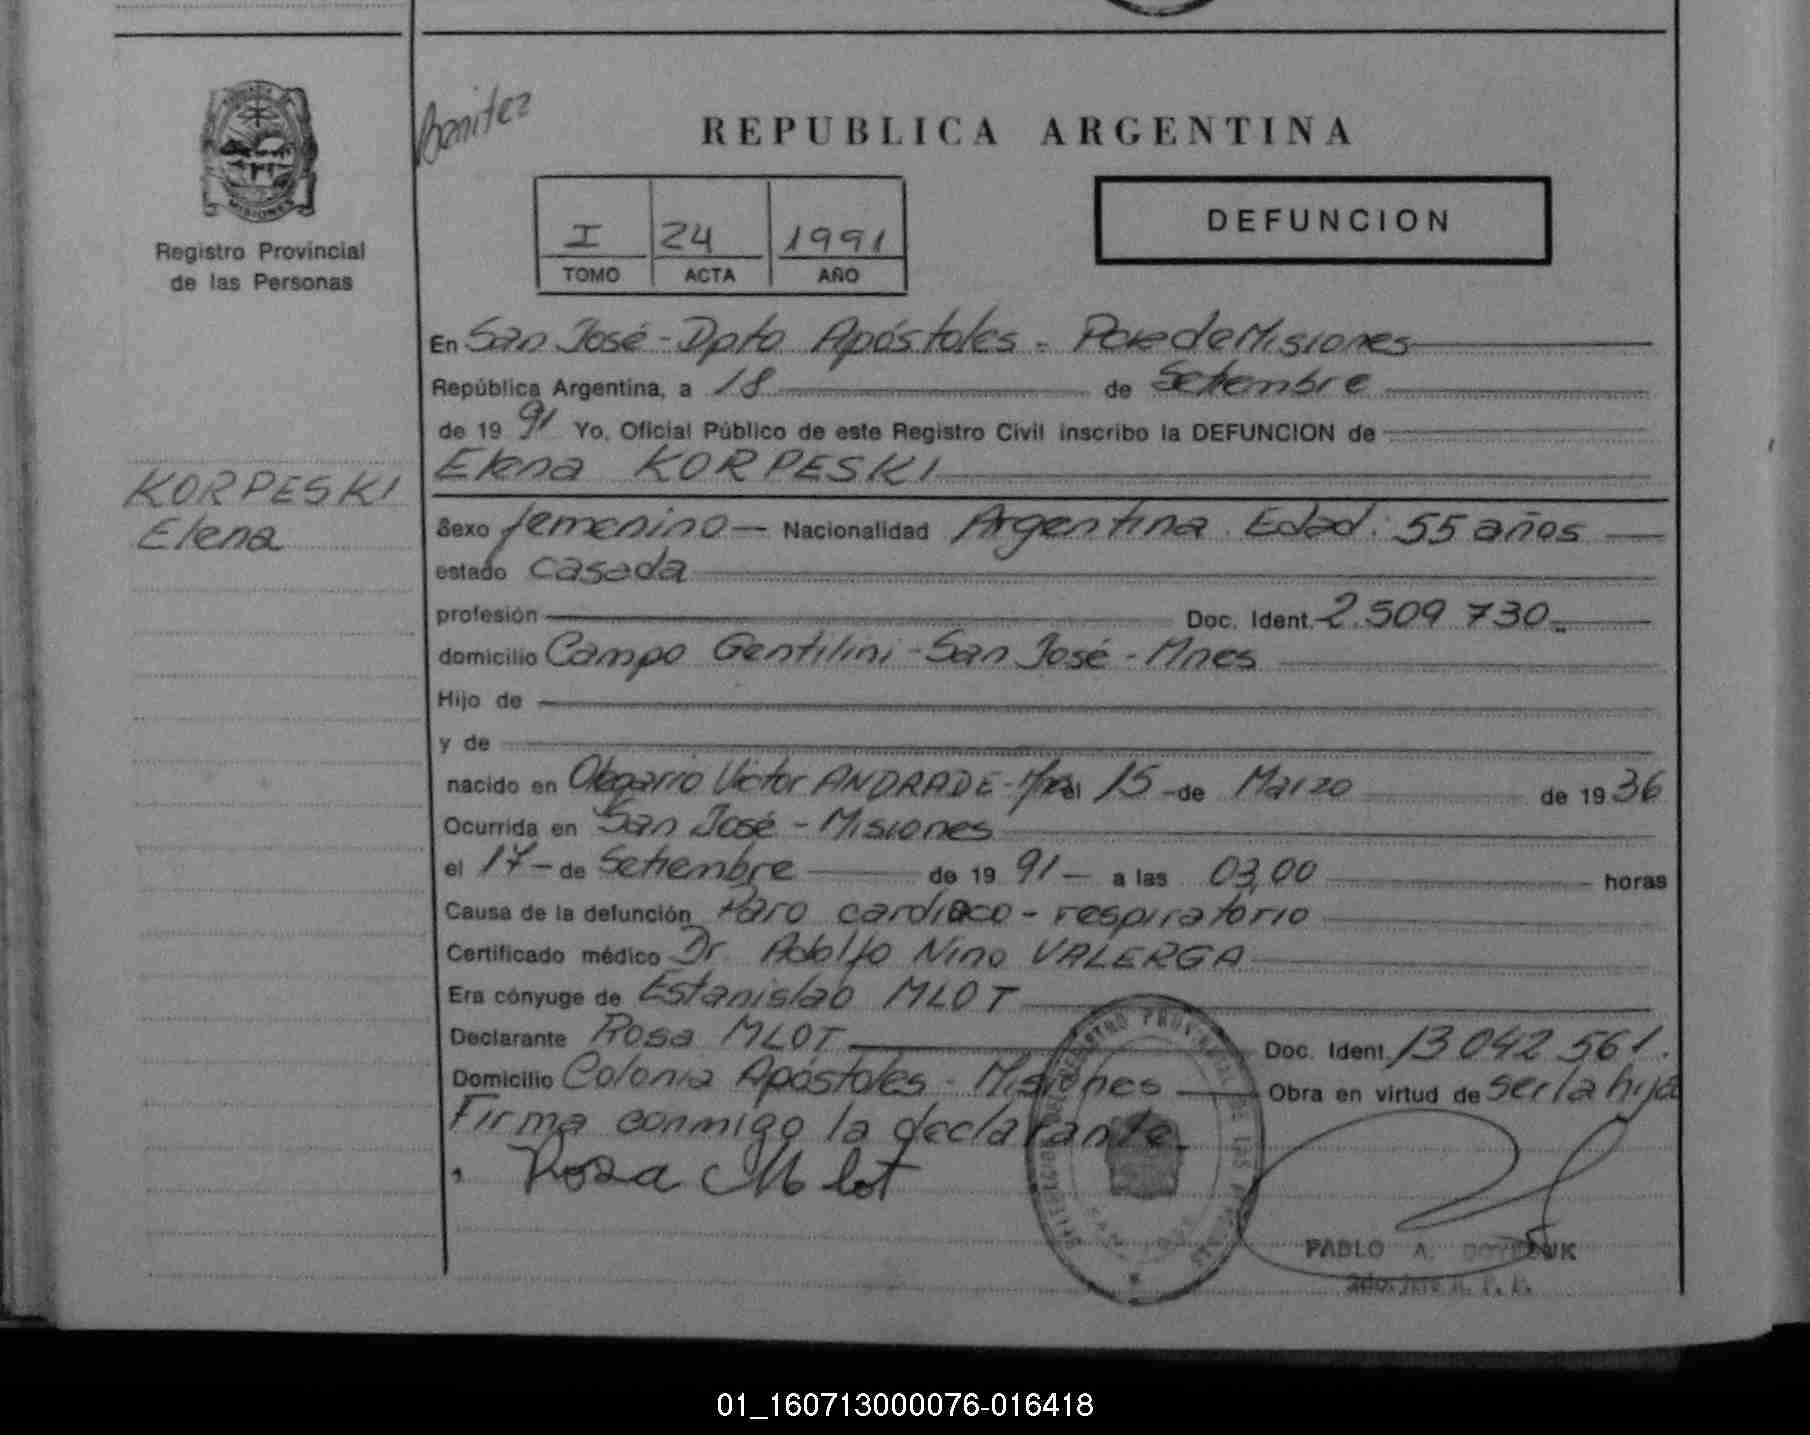 Benitez
REPUBLICA ARGENTINA
MISIONES
Registro Provincial
de las Personas
I 24 1991
TOMO ACTA AÑO
DEFUNCION
En San José - Dpto Apóstoles - Pcia de Misiones
República Argentina, a 18 de Setiembre
de 1991 Yo, Oficial Público de este Registro Civil inscribo la DEFUNCION de
Elena KORPESKI
KORPESKI
Elena
Sexo femenino - Nacionalidad Argentina. Edad: 55 años
estado casada
profesión Doc. Ident. 2.509 730
domicilio Campo Gentilini - San José - Mnes
Hijo de
y de
nacido en Olegario Victor ANDRADE - Mnes el 15 - de Marzo de 1936
Ocurrida en San José - Misiones
el 17 - de Setiembre de 1991 - a las 03,00 horas
Causa de la defunción Paro cardiaco - respiratorio
Certificado médico Dr. Adolfo Nino VALERGA
Era cónyuge de Estanislao MLOT
Declarante Rosa MLOT Doc. Ident. 13 042 561.
Domicilio Colonia Apóstoles - Misiones Obra en virtud de ser la hija
Firma conmigo la declarante.
Rosa Mlot
REGISTRO PROVINCIAL DE LAS PERSONAS
PABLO A.
2do. Jefe R. P. P.
01_160713000076-016418